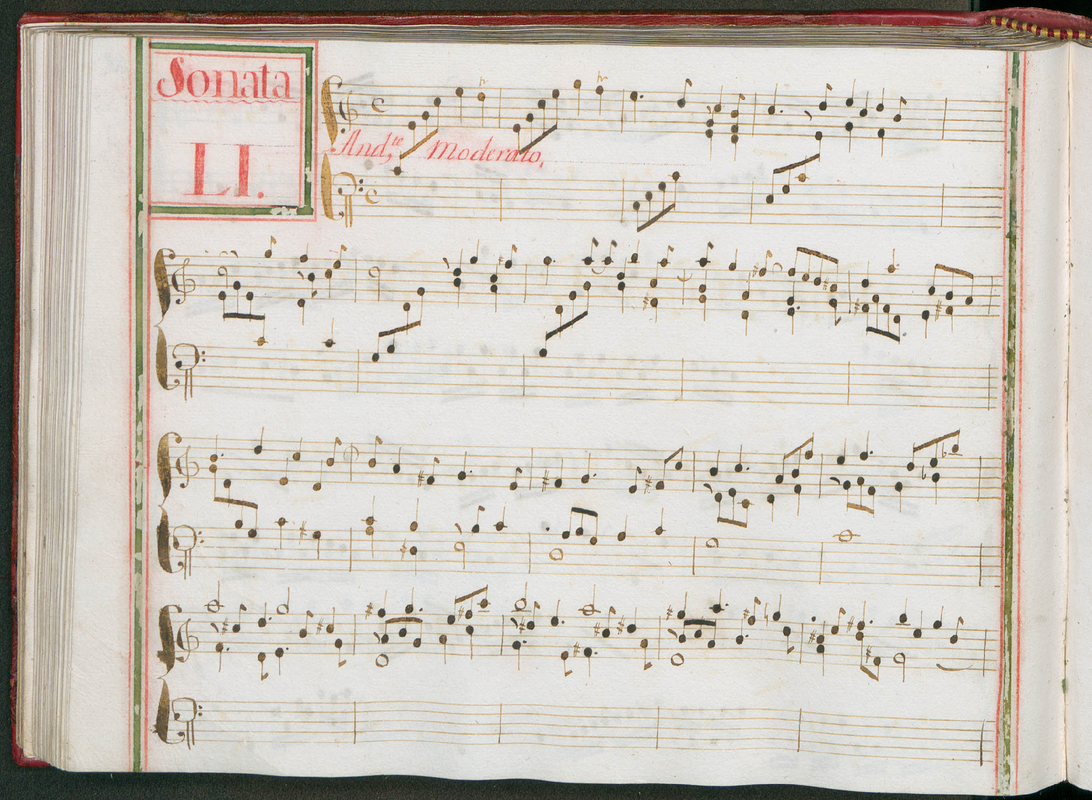 Sonata
LI.
And,te Moderato,